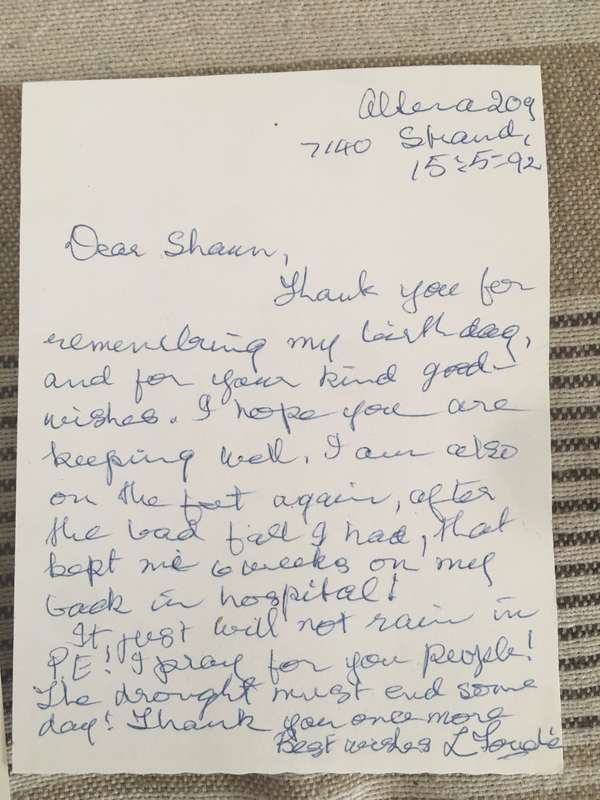 Altena 209
7140 Strand,
15-5-92
Dear Shaun,
Thank you for
remembring my birthday,
and for your kind good
wishes. I hope you are
keeping well. I am also
on the feet again, after
the bad fall I had, that
kept me 6 weeks on my
back in hospital!
It just will not rain in
P.E! I pray for you people!
The drought must end some
day! Thank you once more
Best wishes L